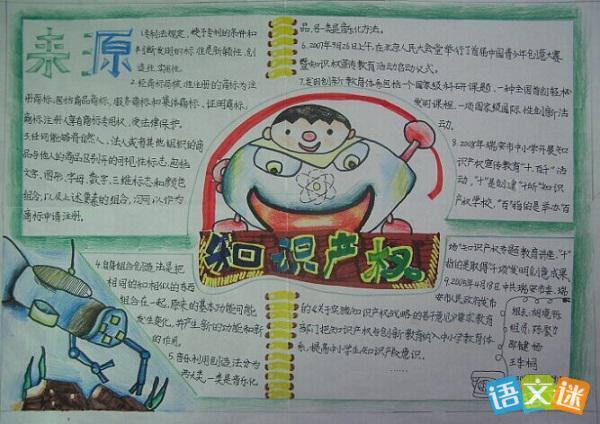 来源
1.专利法规定,授予专利的条件和
判断发明的标准是新颖性,创
造性,实用性。
2.经商标局核准注册的商标为注
册商标,包括商品商标,服务商标和集体商标,证明商标,
商标注册人享有商标专用权,受法律保护。
3.任何能够将自然人、法人或者其他组织的商
品与他人的商品区别开的可视性标志,包括
文字,图形,字母,数字,三维标志和颜色
组合,以及上述要素的组合,均可以作为
商标申请注册。
4.自身组合创造法是把
相同的和相似的东西
组合在一起,原来的基本功能可能
发生变化,并产生新的功能和新
的作用。
5.音乐利用创造法分为
两大类,一类是音乐化
品,另一类是音化方法。
6.2007年9月26日上午,在北京人民大会堂举行了首届中国青少年创意大赛
暨知识产权宣传教育活动启动仪式。
发明课程,一项国家级国际性创新活
动。
8.2008年瑞安市中小学开展知
识产权宣传教育"十百千"活
动,"十"是创建"十所"知识
产权学校,"百"指的是举办百
场"知识产权专题教育讲座,"千"
指的是取得千项发明创意成果
9.2009年4月8日中共瑞安市委、瑞
安市民政府发布
的《关于实施知识产权战略的若干意见》要求教育
部门把知识产权与创新教育纳入中小学教育体
系,提高中小学生知识产权意识。
知识产权
组长:
组员:
语文谜